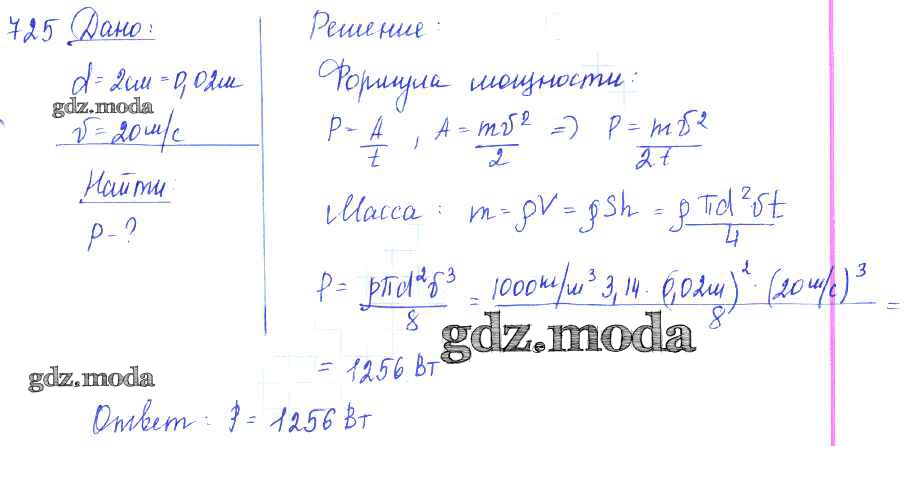 725 Дано:
d = 2см = 0,02м
gdz.moda
v = 20 м/с
Найти:
P - ?
Решение:
Формула мощности:
P = A/t , A = mv²/2 => P = mv²/2t
Масса: m = ρV = ρSh = ρ πd²vt/4
P = ρπd²v³/8 = 1000кг/м³ 3,14 · 0,02м)² · (20 м/с)³/8 =
gdz.moda
= 1256 Вт
gdz.moda
Ответ: P = 1256 Вт